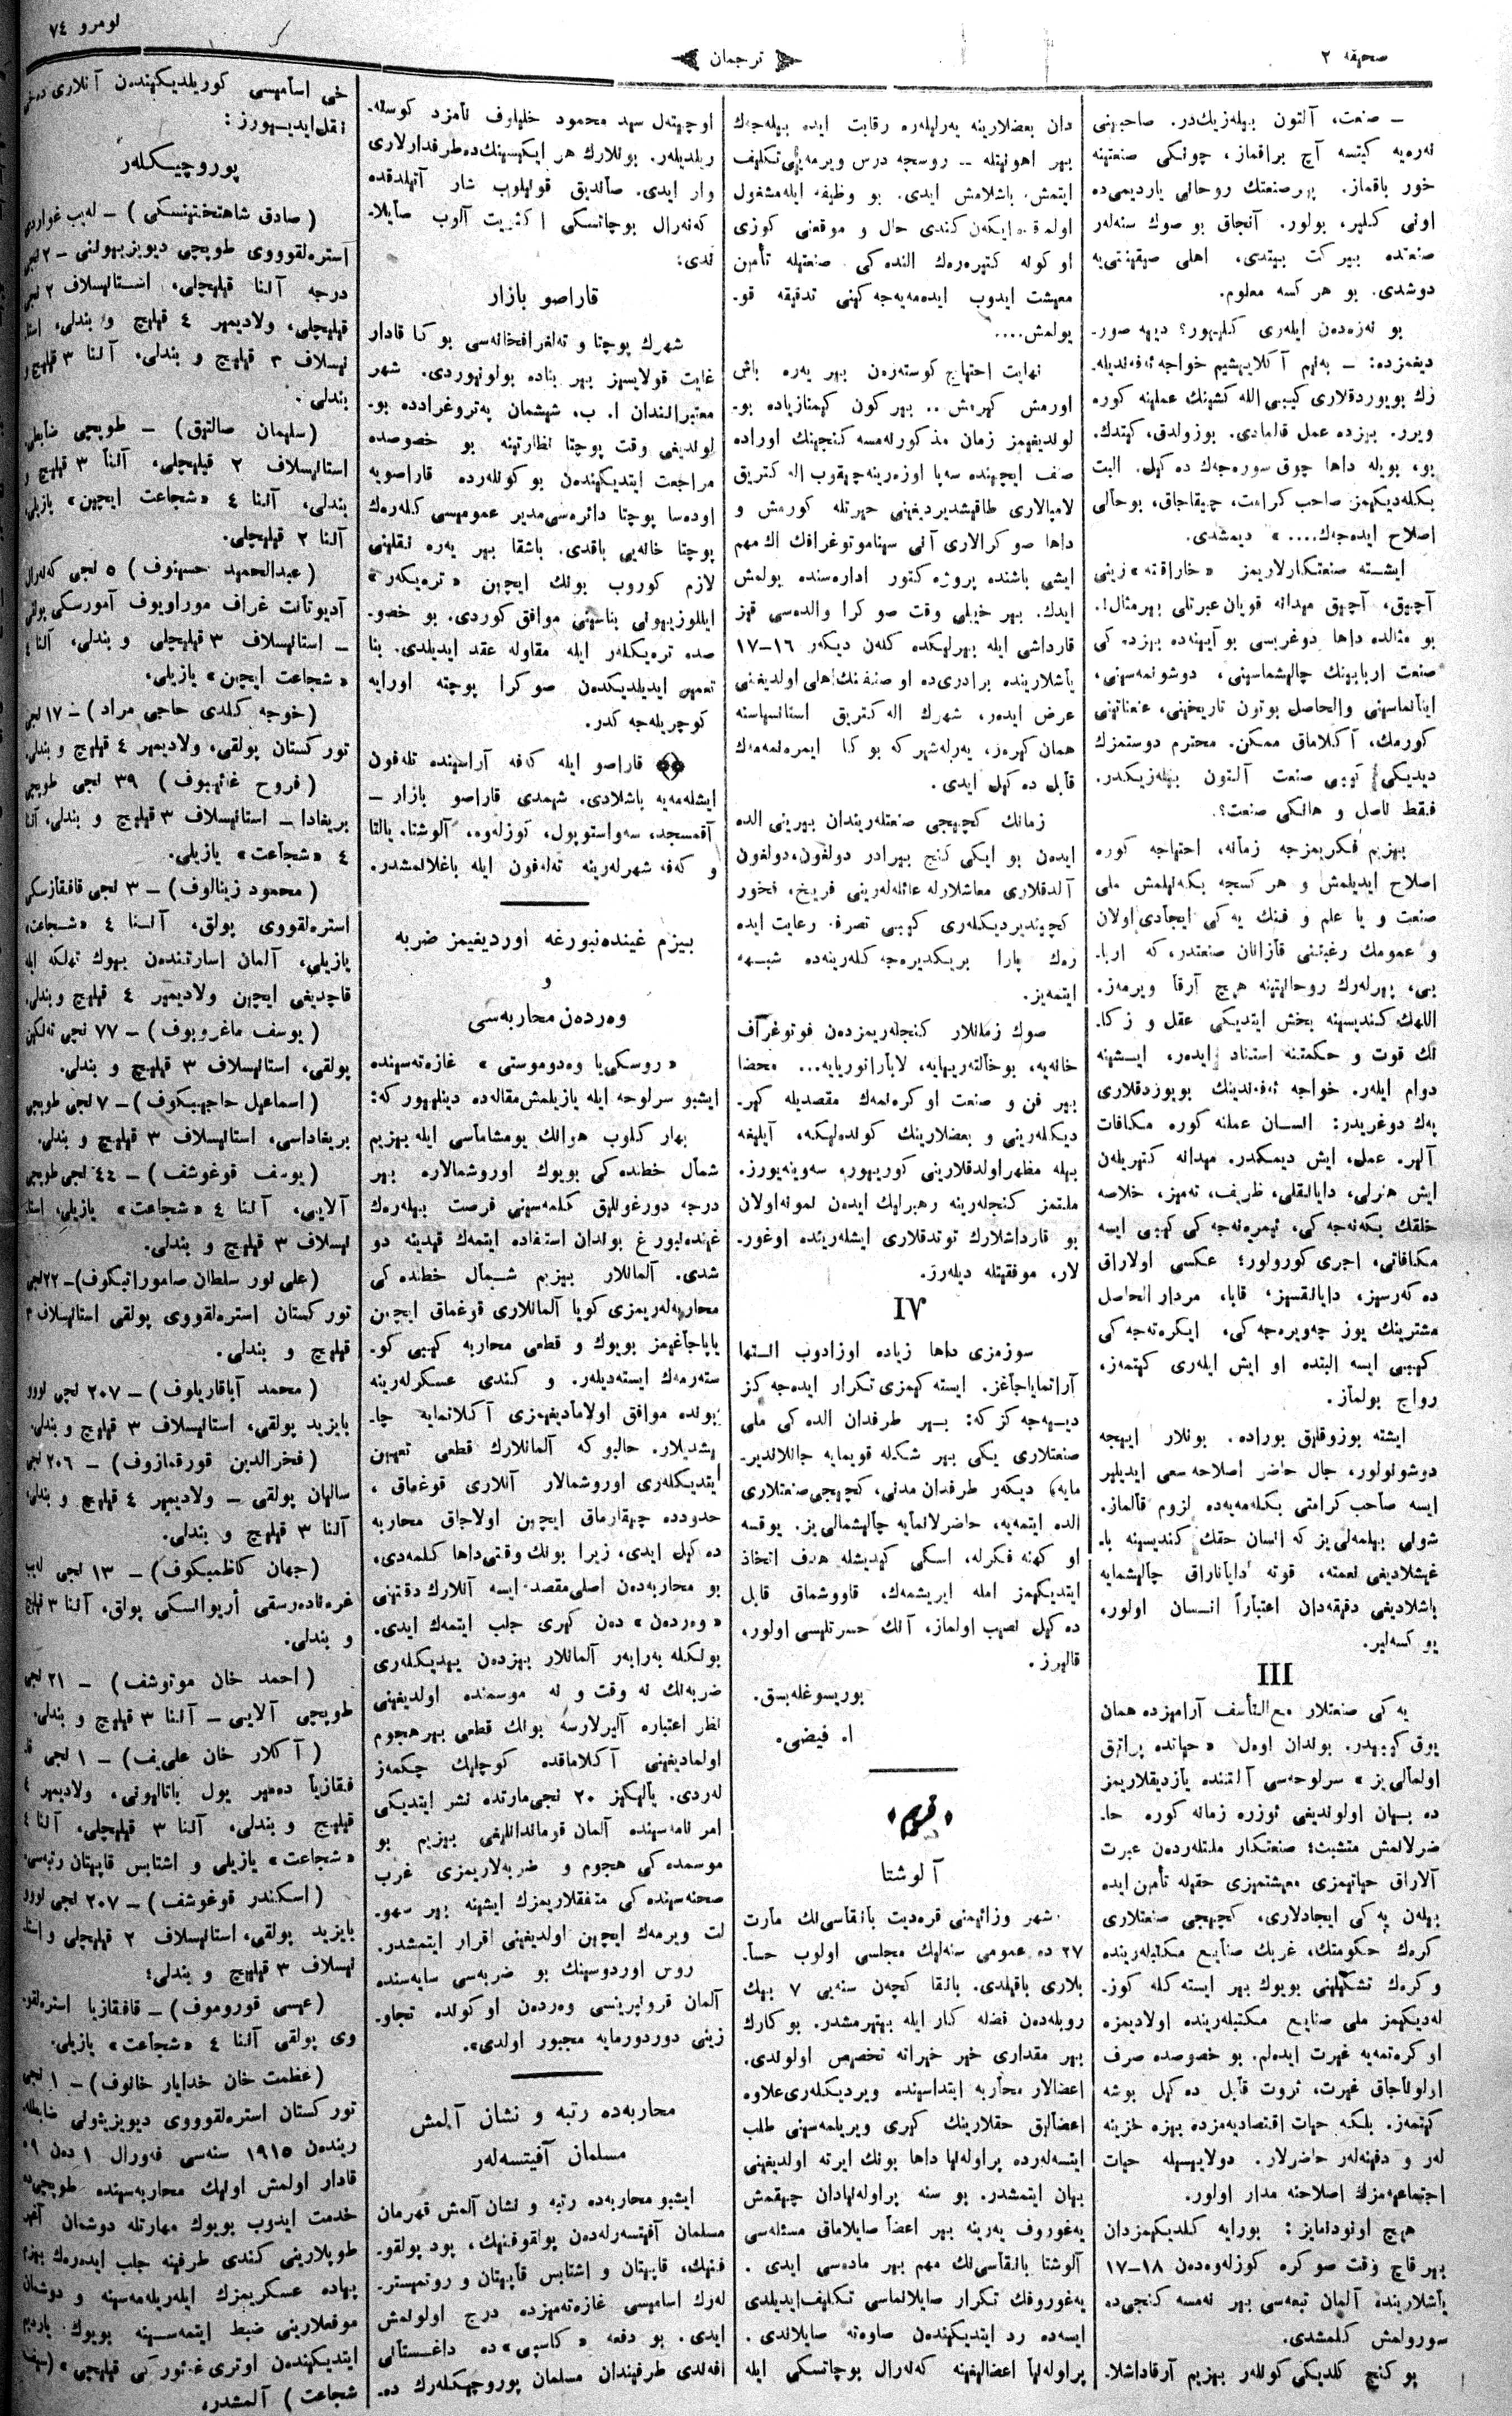 صحیفه ٢
ترجمان
نومرو ٧٤
— صنعت، آلتون بیله‌زیك‌در. صاحبینی
نه‌ره‌یه کیتسه آچ براقماز، چونکی صنعتینه
خور باقماز. پیر صنعتك روحانی یاردیمی‌ده
اونی کلیر، بولور. آنجاق بو صوك سنه‌لر
صنعتده بیر کت بیتدی، اهلی صیقینتی‌یه
دوشدی. بو هر کسه معلوم.
بو نه‌ره‌دن ایله‌ری کلییور؟ دییه صور-
دیغمزده: — به‌نم آکلاییشیم خواجه ئه‌فه‌ندیله-
رك بویوردقلاری کیبی الله کشینك عملینه کوره
ویرر. بیزده عمل قالمادی. بوزولدق، کیتدك.
بو، بویله داها چوق سوره‌جك ده کیل. البت
بکله‌دیکیمز صاحب کرامت، چیقاجاق، بو حالی
اصلاح ایده‌جك....» دیمشدی.
ایشته صنعتکارلاریمز «خاراقته» زینی
آچیق، آچیق میدانه قویان عبرتلی بیر مثال!.
بو مثالده داها دوغریسی بو آیینه‌ده بیزده کی
صنعت اربابینك چالیشماسینی، دوشونمه‌سینی،
اینانماسینی والحاصل بوتون تاریخینی، عنعناتینی
کورمك، آکلاماق ممکن. محترم دوستمزك
دیدیکی کیبی صنعت آلتون بیله‌زیکدر.
فقط ناصل و هانکی صنعت؟
بیزیم فکریمزجه زمانه، احتیاجه کوره
اصلاح ایدیلمش و هر کسجه بکه‌نیلمش ملی
صنعت و یا علم و فنك یه کی ایجادی اولان
و عمومك رغبتنی قازانان صنعتدر، که اربا-
بی، پیرله‌رك روحانیتینه هیچ آرقا ویرمه‌ز.
اللهك کندیسینه بخش ایتدیکی عقل و زکا-
نك قوت و حکمتنه استناد ایده‌ر، ایشینه
دوام ایله‌ر. خواجه ئه‌فه‌ندینك بویوردقلاری
پك دوغریدر: انسان عملنه کوره مکافات
آلیر. عمل، ایش دیمکدر. میدانه کتیریلن
ایش هنرلی، دایانقلی، ظریف، ته‌میز، خلاصه
خلقك بکه‌نه‌جه کی، ئیمره‌نه‌جه کی کیبی ایسه
مکافاتی، اجری کورولور؛ عکسی اولاراق
ده که‌رسیز، دایانقسیز، قابا، مردار الحاصل
مشترینك یوز چه‌ویره‌جه کی، ایکره‌نه‌جه کی
کیبی ایسه البتده او ایش ایله‌ری کیتمه‌ز،
رواج بولماز.
ایشته بوزوقلیق بوراده. بونلار اییجه
دوشونولور، حال حاضر اصلاحه سعی ایدیلیر
ایسه صاحب کرامتی بکله‌مه‌یه‌ده لزوم قالماز.
شونی بیلمه‌لی‌یز که انسان حقك کندیسینه با-
غیشلادیغی نعمته، قوته دایاناراق چالیشمایه
باشلادیغی دقیقه‌دان اعتباراً انسان اولور،
یو کسه‌لیر.
III
یه کی صنعتلار مع‌التأسف آرامیزده همان
یوق کیبیدر. بوندان اوه‌ل «حیاتده پراتیق
اولمالی‌یز» سرلوحه‌سی آلتنده یازدیقلاریمز
ده بیان اولوندیغی ئوزره زمانه کوره حا-
ضرلانمش متشبث؛ صنعتکار ملتله‌ردن عبرت
آلاراق حیاتیمزی معیشتمیزی حقیله تأمین ایده
بیله‌ن یه کی ایجادلاری، کچیجی صنعتلاری
کرك حکومتك، غربك صنایع مکتبله‌رینده
و کرك تشکیلینی بویوك بیر ایسته کله کوز-
له‌دیکیمز ملی صنایع مکتبله‌رینده اولادیمزه
او کره‌تمه‌یه غیرت ایده‌لم. بو خصوصده صرف
اولوناجاق غیرت، ثروت قابل ده کیل بوشه
کیتمه‌ز. بلکه حیات اقتصادیه‌مزده بیزه خزینه
له‌ر و دفینه‌له‌ر حاضرلار. دولاییسیله حیات
اجتماعیه‌مزك اصلاحنه مدار اولور.
هیچ اونودامایز: بورایه کلدیکیمزدان
بیر قاچ وقت صوکره کوزله‌وه‌دن ١٨–١٧
یاشلارینده آلمان تبعه‌سی بیر نه‌مسه کنجی‌ده
سورولمش کلمشدی.
بو کنج کلدیکی کونله‌ر بیزیم آرقاداشلا-
دان بعضلارینه یه‌رلیله‌ره رقابت ایده بیله‌جك
بیر اهونیتله — روسجه درس ویرمه‌یی تکلیف
ایتمش، باشلامش ایدی. بو وظیفه ایله مشغول
اولمقده ایکه‌ن کندی حال و موقعنی کوزی
او کونه کتیره‌رك النده کی صنعتیله تأمین
معیشت ایدوب ایده‌مه‌یه‌جه کینی تدقیقه قو-
یولمش....
نهایت احتیاج کوسته‌ره‌ن بیر یه‌ره باش
اورمش کیرمش .. بیر کون کیمنازیاده بو-
لوندیغیمز زمان مذکور نه‌مسه کنجینك اوراده
صنف ایچینده سه‌پا اوزه‌رینه چیقوب اله کتریق
لامپالاری طاقیشدیردیغینی حیرتله کورمش و
داها صوکرالاری آنی سیناموتوغرافك اك مهم
ایشی باشنده پروژه‌کتور اداره‌سنده بولمش
ایدك. بیر خیلی وقت صوکرا والده‌سی قیز
قارداشی ایله بیرلیکده کلن دیکه‌ر ١٦–١٧
یاشلارینده برادری‌ده او صنفنك اهلی اولدیغنی
عرض ایده‌ر، شهرك اله کتریق استانسیاسنه
همان کیره‌ر، یه‌رله‌شیر که بوکا ایمره‌نمه‌مك
قابل ده کیل ایدی.
زمانك کچیجی صنعتله‌ریندان بیرینی الده
ایده‌ن بو ایکی کنج بیرادر دولغون، دولغون
آلدقلاری معاشلارله عائله‌له‌رینی فریخ، فخور
کچیندیردیکله‌ری کیبی تصرفه رعایت ایده
ره‌ك پارا بریکدیره‌جه کله‌رینه‌ده شبهه
ایتمه‌یز.
صوك زمانلار کنجله‌ریمزدن فوتوغراف
خانه‌یه، بوخالته‌رییایه، لابارانوریایه... محضا
بیر فن و صنعت او کره‌نمك مقصدیله کیر-
دیکله‌رینی و بعضلارینك کونده‌لیکه، آیلیغه
بیله مظهر اولدقلارینی کورییور، سه‌وینه‌یورز.
ملتمز کنجله‌رینه رهبرلیك ایدن نمونه اولان
بو قارداشلارك توتدقلاری ایشله‌رینده اوغور-
لار، موفقیتله دیله‌رز.
IV
سوزمزی داها زیاده اوزادوب التها
آراتمایاجاغز. ایسته کیمزی تکرار ایده‌جه کز
دییه‌جه کز که: بیر طرفدان الده کی ملی
صنعتلاری یکی بیر شکله قویمایه جانلاندیر-
مایه، دیکه‌ر طرفدان مدنی، کچیجی صنعتلاری
الده ایتمه‌یه، حاضرلانمایه چالیشمالی‌یز. یوقسه
او کهنه فکرله، اسکی کیدیشله هدف اتخاذ
ایتدیکیمز امله ایریشمك، قاووشماق قابل
ده کیل نصیب اولماز، آنك حسرتلیسی اولور،
قالیرز.
بوریسوغله‌بسق.
ا. فیضی.
«قریم»
آلوشتا
شهر وزائیمنی قره‌دیت بانقاسی‌نك مارت
٢٧ ده عمومی سنه‌لیك مجلسی اولوب حسا-
بلاری باقیلدی. بانقا کچه‌ن سنه‌یی ٧ بیك
روبله‌دن فضله کار ایله بیتیرمشدر. بو کارك
بیر مقداری خیر خیراته تخصیص اولوندی.
اعضالار محاربه ابتداسینده ویردیکله‌ری علاوه
اعضالیق حقلارینك کیری ویریلمه‌سینی طلب
ایتسه‌له‌رده پراوله‌نیا داها بونك ایرته اولدیغینی
بیان ایتمشدر. بو سنه پراوله‌نیادان چیقمش
یه‌غوروف یه‌رینه بیر اعضا صایلاماق مسئله‌سی
آلوشتا بانقاسی‌نك مهم بیر ماده‌سی ایدی.
یه‌غوروفك تکرار صایلانماسی تکلیف ایدیلدی
ایسه‌ده رد ایتدیکیندن صاوه‌ته صایلاندی.
پراوله‌نیا اعضالیغینه که‌نه‌رال بوچاتسکی ایله
اوچیته‌ل سید محمود خلیلوف نامزد کوسته-
ریلدیله‌ر. بونلارك هر ایکیسینك‌ده طرفدارلاری
وار ایدی. صاندیق قونیلوب شار آتیلدقده
که‌نه‌رال بوچاتسکی اکثریت آلوب صایلا-
ندی.
قاراصو بازار
شهرك پوچتا و ته‌لغرافخانه‌سی بو کا قادار
غایت قولایسیز بیر بناده بولونیوردی. شهر
معتبراندان ا. ب. شیشمان په‌تروغرادده بو-
لوندیغی وقت پوچتا نظارتینه بو خصوصده
مراجعت ایتدیکیندن بو کونله‌رده قاراصویه
اوده‌سا پوچتا دائره‌سی مدیر عمومیسی کله‌رك
پوچتا خانه‌یی باقدی. باشقا بیر یه‌ره نقلینی
لازم کوروب بونك ایچین «تره‌یکه‌ر»
ایللوزییونی بناسینی موافق کوردی. بو خصو-
صده تره‌یکله‌ر ایله مقاوله عقد ایدیلدی. بنا
تعمیر ایدیلدیکدن صوکرا پوچته اورایه
کوچریله‌جه کدر.
قاراصو ایله که‌فه آراسینده تله‌فون
ایشله‌مه‌یه باشلادی. شیمدی قاراصو بازار —
آقمسجد، سه‌واستوپول، کوزله‌وه، آلوشتا، یالتا
و که‌فه شهرله‌رینه ته‌له‌فون ایله باغلانمشدر.
بیزم غینده‌نبورغه اوردیغیمز ضربه
و
وه‌ردن محاربه‌سی
«روسکی‌یا وه‌دوموستی» غازه‌ته‌سینده
ایشبو سرلوحه ایله یازیلمش مقاله‌ده دینلییور که:
بهار کلوب هوانك یومشاماسی ایله بیزیم
شمال خطنده کی بویوك اوروشمالاره بیر
درجه دورغونلیق کلمه‌سینی فرصت بیله‌رك
غینده‌نبورغ بوندان استفاده ایتمك قیدینه دو
شدی. آلمانلار بیزیم شمال خطنده کی
محاربه‌له‌ریمزی کویا آلمانلاری قوغماق ایچین
یاپاجاغیمز بویوك و قطعی محاربه کیبی کو-
سته‌رمك ایسته‌دیله‌ر. و کندی عسکرله‌رینه
بونده موافق اولامادیغیمزی آکلاتمایه چا-
لیشدیلار. حالبو که آلمانلارك قطعی تعیین
ایتدیکله‌ری اوروشمالار آنلاری قوغماق،
حدودده چیقارماق ایچین اولاجاق محاربه
ده کیل ایدی، زیرا بونك وقتی داها کلمه‌دی.
بو محاربه‌دن اصلی مقصد ایسه آنلارك دقتینی
«وه‌ردن» دن کیری جلب ایتمك ایدی.
بونکله به‌رابه‌ر آلمانلار بیزدن ییدیکله‌ری
ضربه‌نك نه وقت و نه موسمنده اولدیغینی
نظر اعتباره آلیرلارسه بونك قطعی بیر هجوم
اولمادیغینی آکلاماقده کوچلیك چکمه‌ز
له‌ردی. یالکیز ٢٠ نجی مارتده نشر ایتدیکی
امر نامه‌سینده آلمان قومانداانلیغی بیزیم بو
موسمده کی هجوم و ضربه‌لاریمزی غرب
صحنه‌سینده کی متفقلاریمزك ایشینه بیر سهو-
لت ویرمك ایچین اولدیغینی اقرار ایتمشدر.
روس اوردوسینك بو ضربه‌سی سایه‌سنده
آلمان قرونپرینسی وه‌ردن او کونده تجاو-
زینی دوردورمایه مجبور اولدی».
محاربه‌ده رتبه و نشان آلمش
مسلمان آفیتسه‌له‌ر
ایشبو محاربه‌ده رتبه و نشان آلمش قهرمان
مسلمان آفیتسه‌رله‌دن پولقوفنیك، پود پولقو-
فنیك، قاپیتان و اشتابس قاپیتان و روتمیستر-
له‌رك اسامیسی غازه‌ته‌میزده درج اولونمش
ایدی. بو دفعه «کاسپی» ده داغستانی
افه‌ندی طرفیندان مسلمان پوروچیکله‌رك ده-
خی اسامیسی کوریلدیکیندن آنلاری دخی
نقل ایدییورز:
پوروچیکله‌ر
(صادق شاهتختینسکی) — له‌یب غواردی
استره‌لقووی طوپچی دیویزییونی — ٢ نجی
درجه آننا قیلیچلی، استانیسلاف ٢ نجی
قیلیچلی، ولادیمیر ٤ قیلیچ و بندلی، استا-
نیسلاف ٣ قیلیچ و بندلی، آننا ٣ قیلیچ و
بندلی.
(سلیمان صالتیق) — طوپچی ضابطی
استانیسلاف ٢ قیلیچلی، آننا ٣ قیلیچ و
بندلی، آننا ٤ «شجاعت ایچین» یازیلی،
آننا ٢ قیلیچلی.
(عبدالحمید حسینوف) ٥ نجی که‌نه‌رال
آدیوتانت غراف موراویوف آمورسکی پولقی
— استانیسلاف ٣ قیلیچلی و بندلی، آننا ٤
«شجاعت ایچین» یازیلی،
(خوجه کلدی حاجی مراد) — ١٧ نجی
تورکستان پولقی، ولادیمیر ٤ قیلیچ و بندلی.
(فروح غائیبوف) ٣٩ نجی طوپچی
بریغادا — استانیسلاف ٣ قیلیچ و بندلی، آننا
٤ «شجاعت» یازیلی.
(محمود زینالوف) — ٣ نجی قافقازسکی
استره‌لقووی پولق، آننا ٤ «شجاعت»
یازیلی، آلمان اسارتندن بیوك تهلکه ایله
قاچدیغی ایچین ولادیمیر ٤ قیلیچ و بندلی.
(یوسف ماغروبوف) — ٧٧ نجی ته‌نکین
پولقی، استانیسلاف ٣ قیلیچ و بندلی.
(اسماعیل حاجیبیکوف) — ٧ نجی طوپچی
بریغاداسی، استانیسلاف ٣ قیلیچ و بندلی.
(یوسف قوغوشف) — ٤٤ نجی طوپچی
آلایی، آننا ٤ «شجاعت» یازیلی، استا-
نیسلاف ٣ قیلیچ و بندلی.
(علی نور سلطان صاموراتبکوف) — ٢٢ نجی
تورکستان استره‌لقووی پولقی استانیسلاف ٣
قیلیچ و بندلی.
(محمد آباقاریلوف) — ٢٠٧ نجی نووو
بایزید پولقی، استانیسلاف ٣ قیلیچ و بندلی.
(فخرالدین قورقمازوف) — ٢٠٦ نجی
سالیان پولقی — ولادیمیر ٤ قیلیچ و بندلی،
آننا ٣ قیلیچ و بندلی.
(جهان کاظمبکوف) — ١٣ نجی له‌یب
غره‌نادرسقی أریوانسکی پولق، آننا ٣ قیلیچ
و بندلی.
(احمد خان موتوشف) — ٢١ نجی
طوپچی آلایی — آننا ٣ قیلیچ و بندلی.
(آکلار خان علی‌یف) — ١ نجی قا-
فقازیا ده‌میر یول باتالیونی، ولادیمیر ٤
قیلیچ و بندلی، آننا ٣ قیلیچلی، آننا ٤
«شجاعت» یازیلی و اشتابس قاپیتان رتبه‌سی.
(اسکندر قوغوشف) — ٢٠٧ نجی نووو
بایزید پولقی، استانیسلاف ٢ قیلیچلی و استا-
نیسلاف ٣ قیلیچ و بندلی؛
(عیسی قوروموف) — قافقازیا استره‌لقو-
وی پولقی آننا ٤ «شجاعت» یازیلی.
(عظمت خان خدایار خانوف) — ١ نجی
تورکستان استره‌لقووی دیویزییونی ضابطله-
ریندن ١٩١٥ سنه‌سی فه‌ورال ١ دن ٠٩
قادار اولمش اولیك محاربه‌سینده طوپچی‌ده
خدمت ایدوب بویوك مهارتله دوشمان آغیر
طوپلارینی کندی طرفینه جلب ایده‌رك بیزم
پیاده عسکریمزك ایله‌ریله‌مه‌سینه و دوشمان
موقعلارینی ضبط ایتمه‌سینه بویوك یاردیم
ایتدیکیندن اوتری غه‌ئورکی قیلیچی» (سیف
شجاعت) آلمشدر،